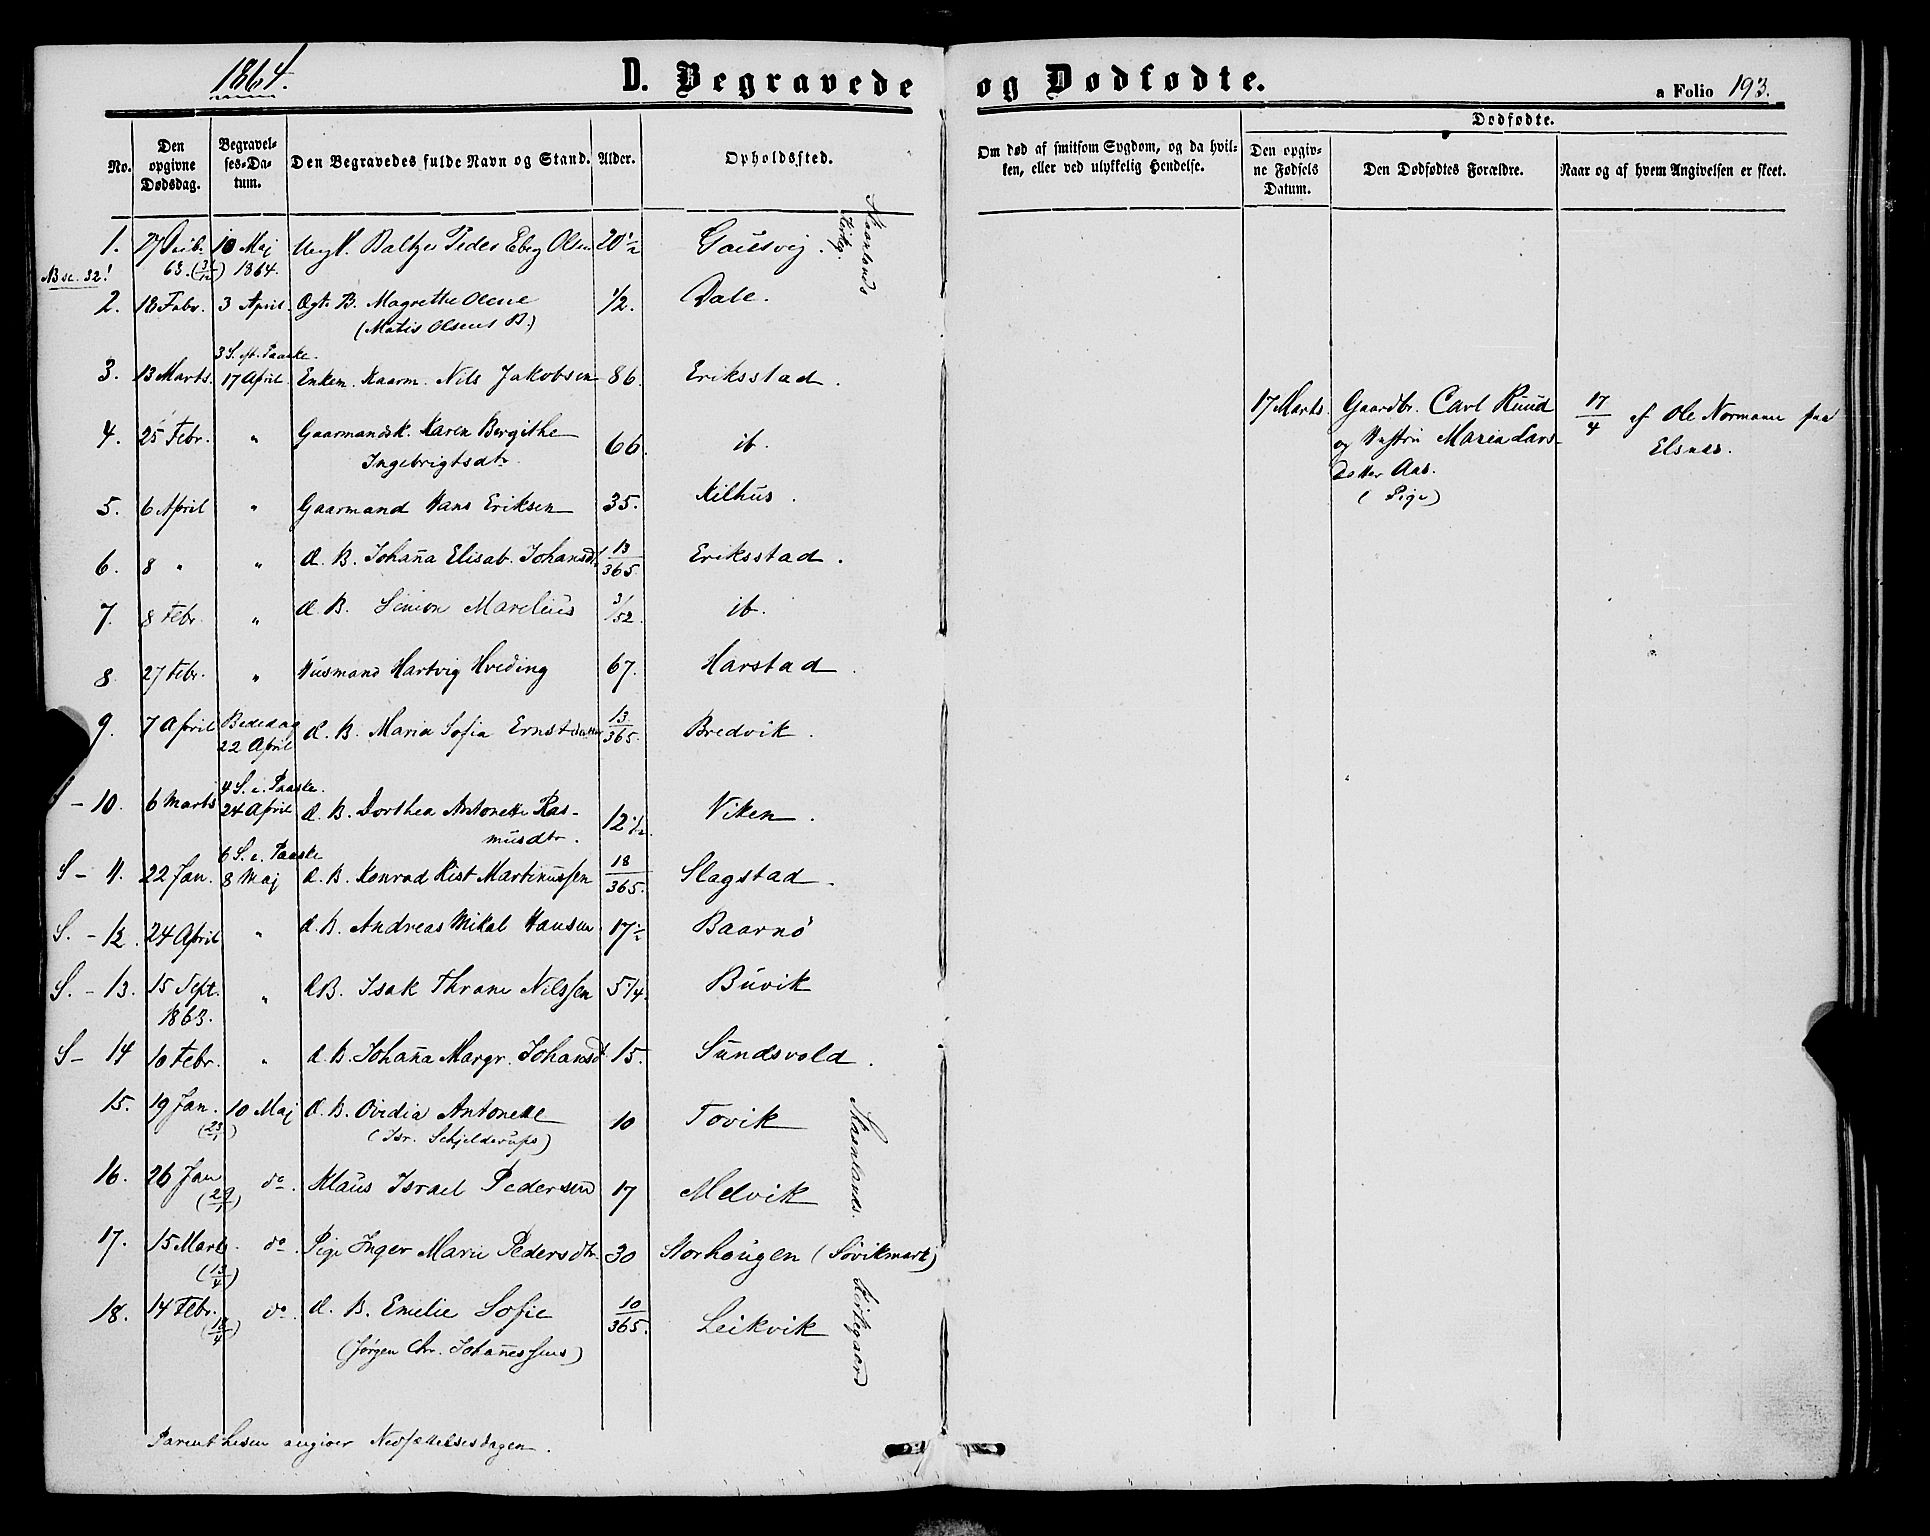 1864.
D. Begravede og Dødfødte.
a Folio 193.
No.
Den opgivne Dødsdag.
Begravel-ses-Da-tum.
Den Begravedes fulde Navn og Stand.
Alder.
Opholdssted.
Om død af smitsom Sygdom, og da hvil-ken, eller ved ulykkelig Hendelse.
Dødfødte.
Den opgiv-ne Fødsels Datum.
Den Dødfødtes Forældre.
Naar og af hvem Angivelsen er skeet.
1. 10 Maj Ungk. Baltzer Peder Ebeg Olsen 20 1/2 Gausvig.
63. 1864.
2. 18 Febr. 3 April Ægte B. Magrethe Olene 1/2. Dale.
(Matis Olsens B.)
3 S. ef. Paaske.
3. 13 Marts. 17 April Enkem. Kaarm. Nils Jakobsen 86. Eriksstad.
4. 25 Febr. " Gaarmandsk. Karen Bergithe 66. ib.
Ingebrigtsdtr.
5. 6 April " Gaarmand Hans Eriksen 35. Kilhus.
6. 8 " " Æ. B. Johan̄a Elisab. Johansdtr. 13/365. Eriksstad.
7. 8 Febr. " Æ B. Simon Marelius 3/52. ib.
8. 27 Febr. " Husmand Hartvig Hveding 67. Harstad.
9. 7 April Bededag 22 April Æ. B. Maria Sofia Ernstdatter 13/365. Bredvik.
4 S. e. Paaske.
- 10. 6 Marts 24 April Æ. B. Dorthea Antonette Ras-musdtr. 12 1/2. Viken.
6 S. e. Paaske
S - 11. 22 Jan. 8 Maj Æ. B. Konrad Kist Martinussen 18/365. Slagstad.
S. - 12. 24 April " Æ. B. Andreas Mikal Hansen 17 1/2 Baarnø
S. - 13. 15 Sept. 1863. " Æ B. Isak Thrane Nilssen 5 1/4. Buvik
S - 14 10 Febr. " Æ. B. Johan̄a Margr. Johansdt 15. Sundsvold.
15. 19 Jan. (23/1) 10 Maj Æ. B. Ovidia Antonette 10 Tovik
(Isr. Schjelderups)
16. 26 Jan do. Klaus Israel Pedersen 17 Melvik
17. 15 Marts. (13/4) do. Pige Inger Marie Pedersdtr. 30 Storhougen (Søvikmark)
18. 14 Febr. do. Æ. B. Emelie Sofie 10/365. Leikvik
(Jørgen Chr. Johan̄essens)
Kirkegaard
17 Marts. Gaardbr. Carl Ruud 17/4 af Ole Normann paa
og Hustru Maria Lars- Elsnæs.
datter Aas.
(Pige)
Parenthesen angiver Nedsættelsesdagen.